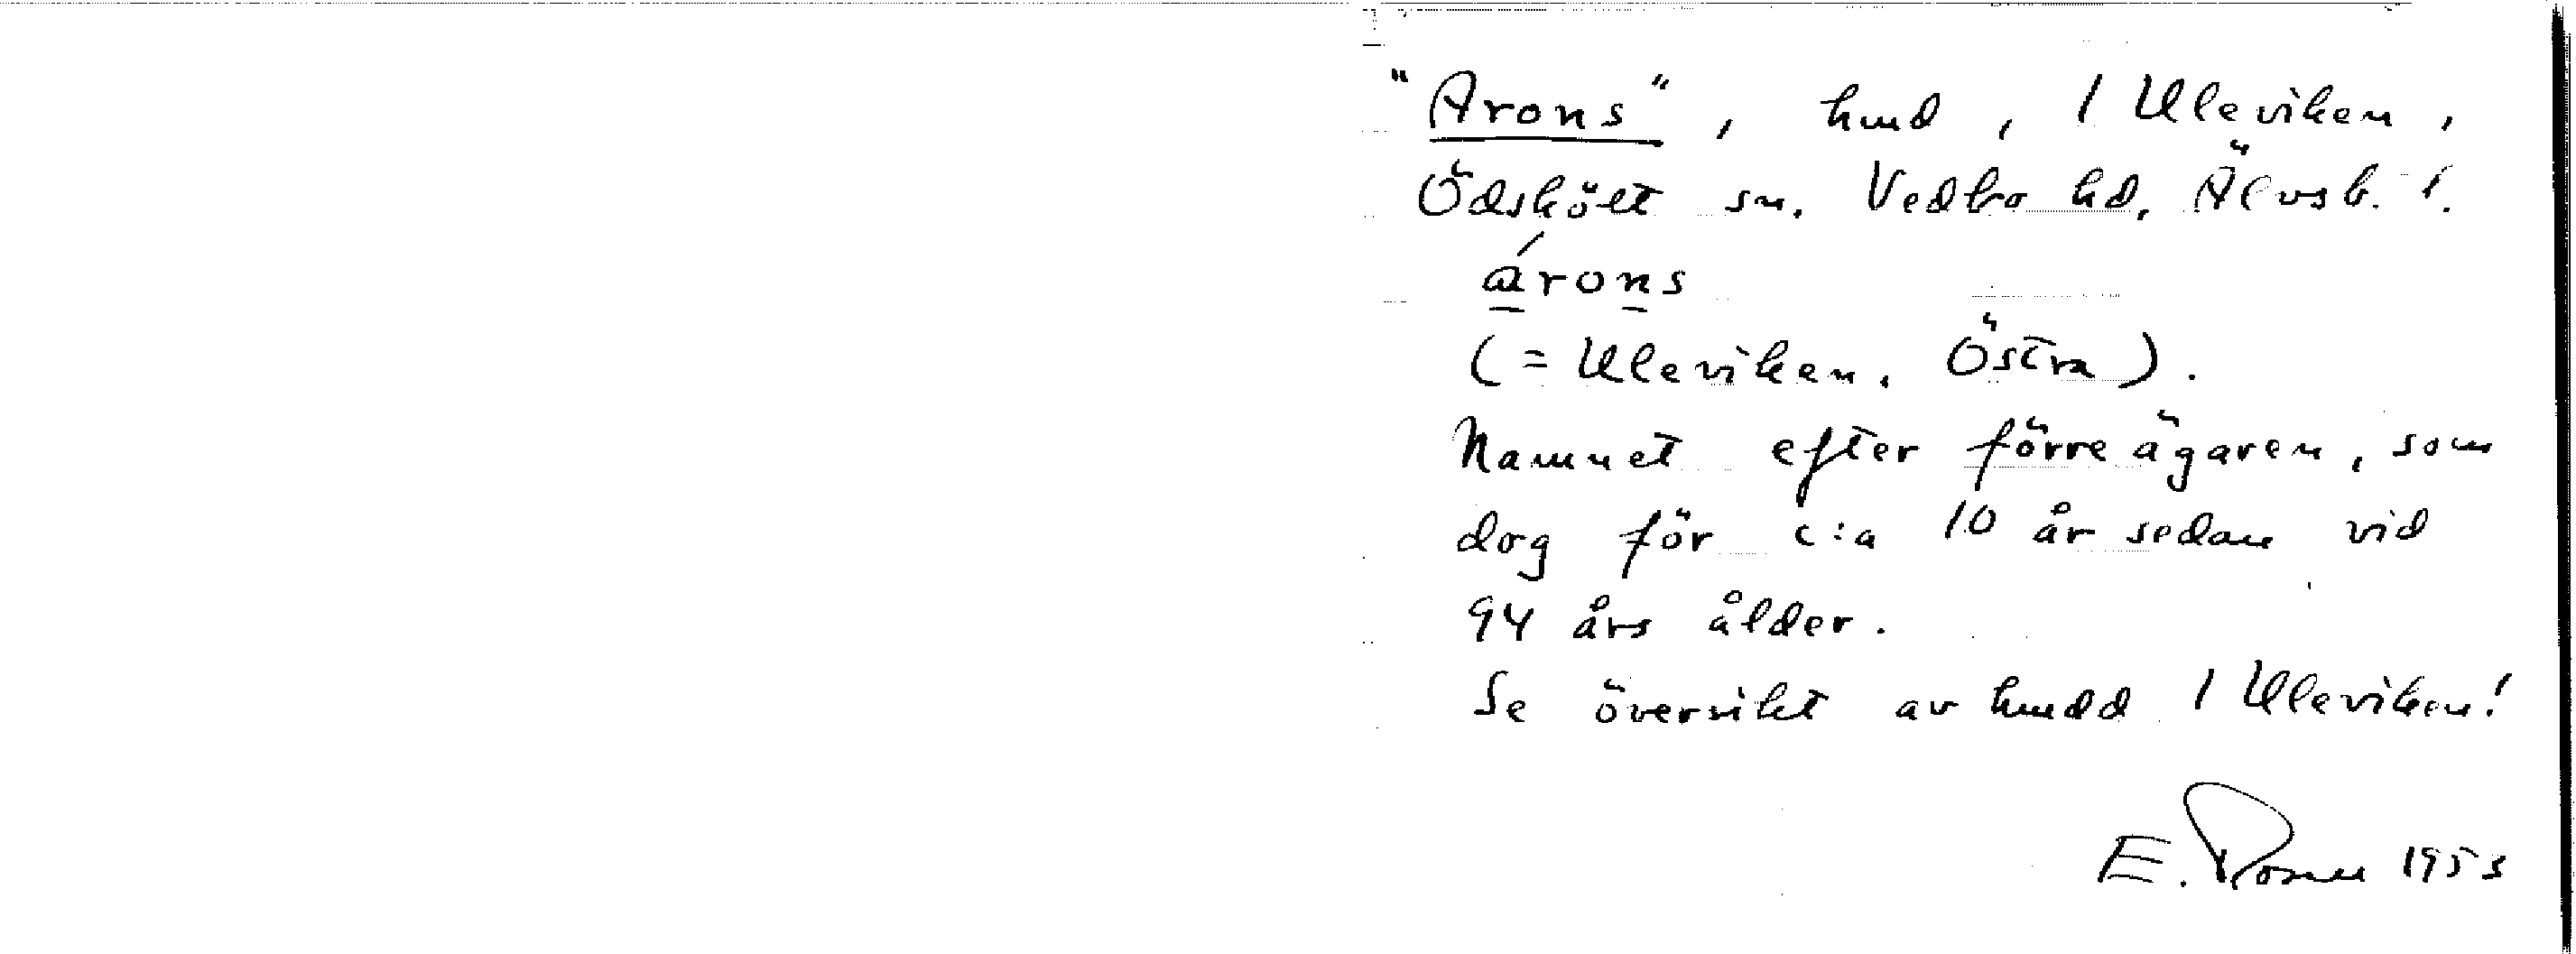 "Arons", hmd, 1 Uleviken,
Ödskölt sn. Vedbo hd, Älvsb. l.
árons
(= Uleviken, Östra).
Namnet efter förre ägaren, som
dog för c:a 10 år sedan vid
94 års ålder.
Se översikt av hmdd 1 Uleviken!
E. Rosell 1953